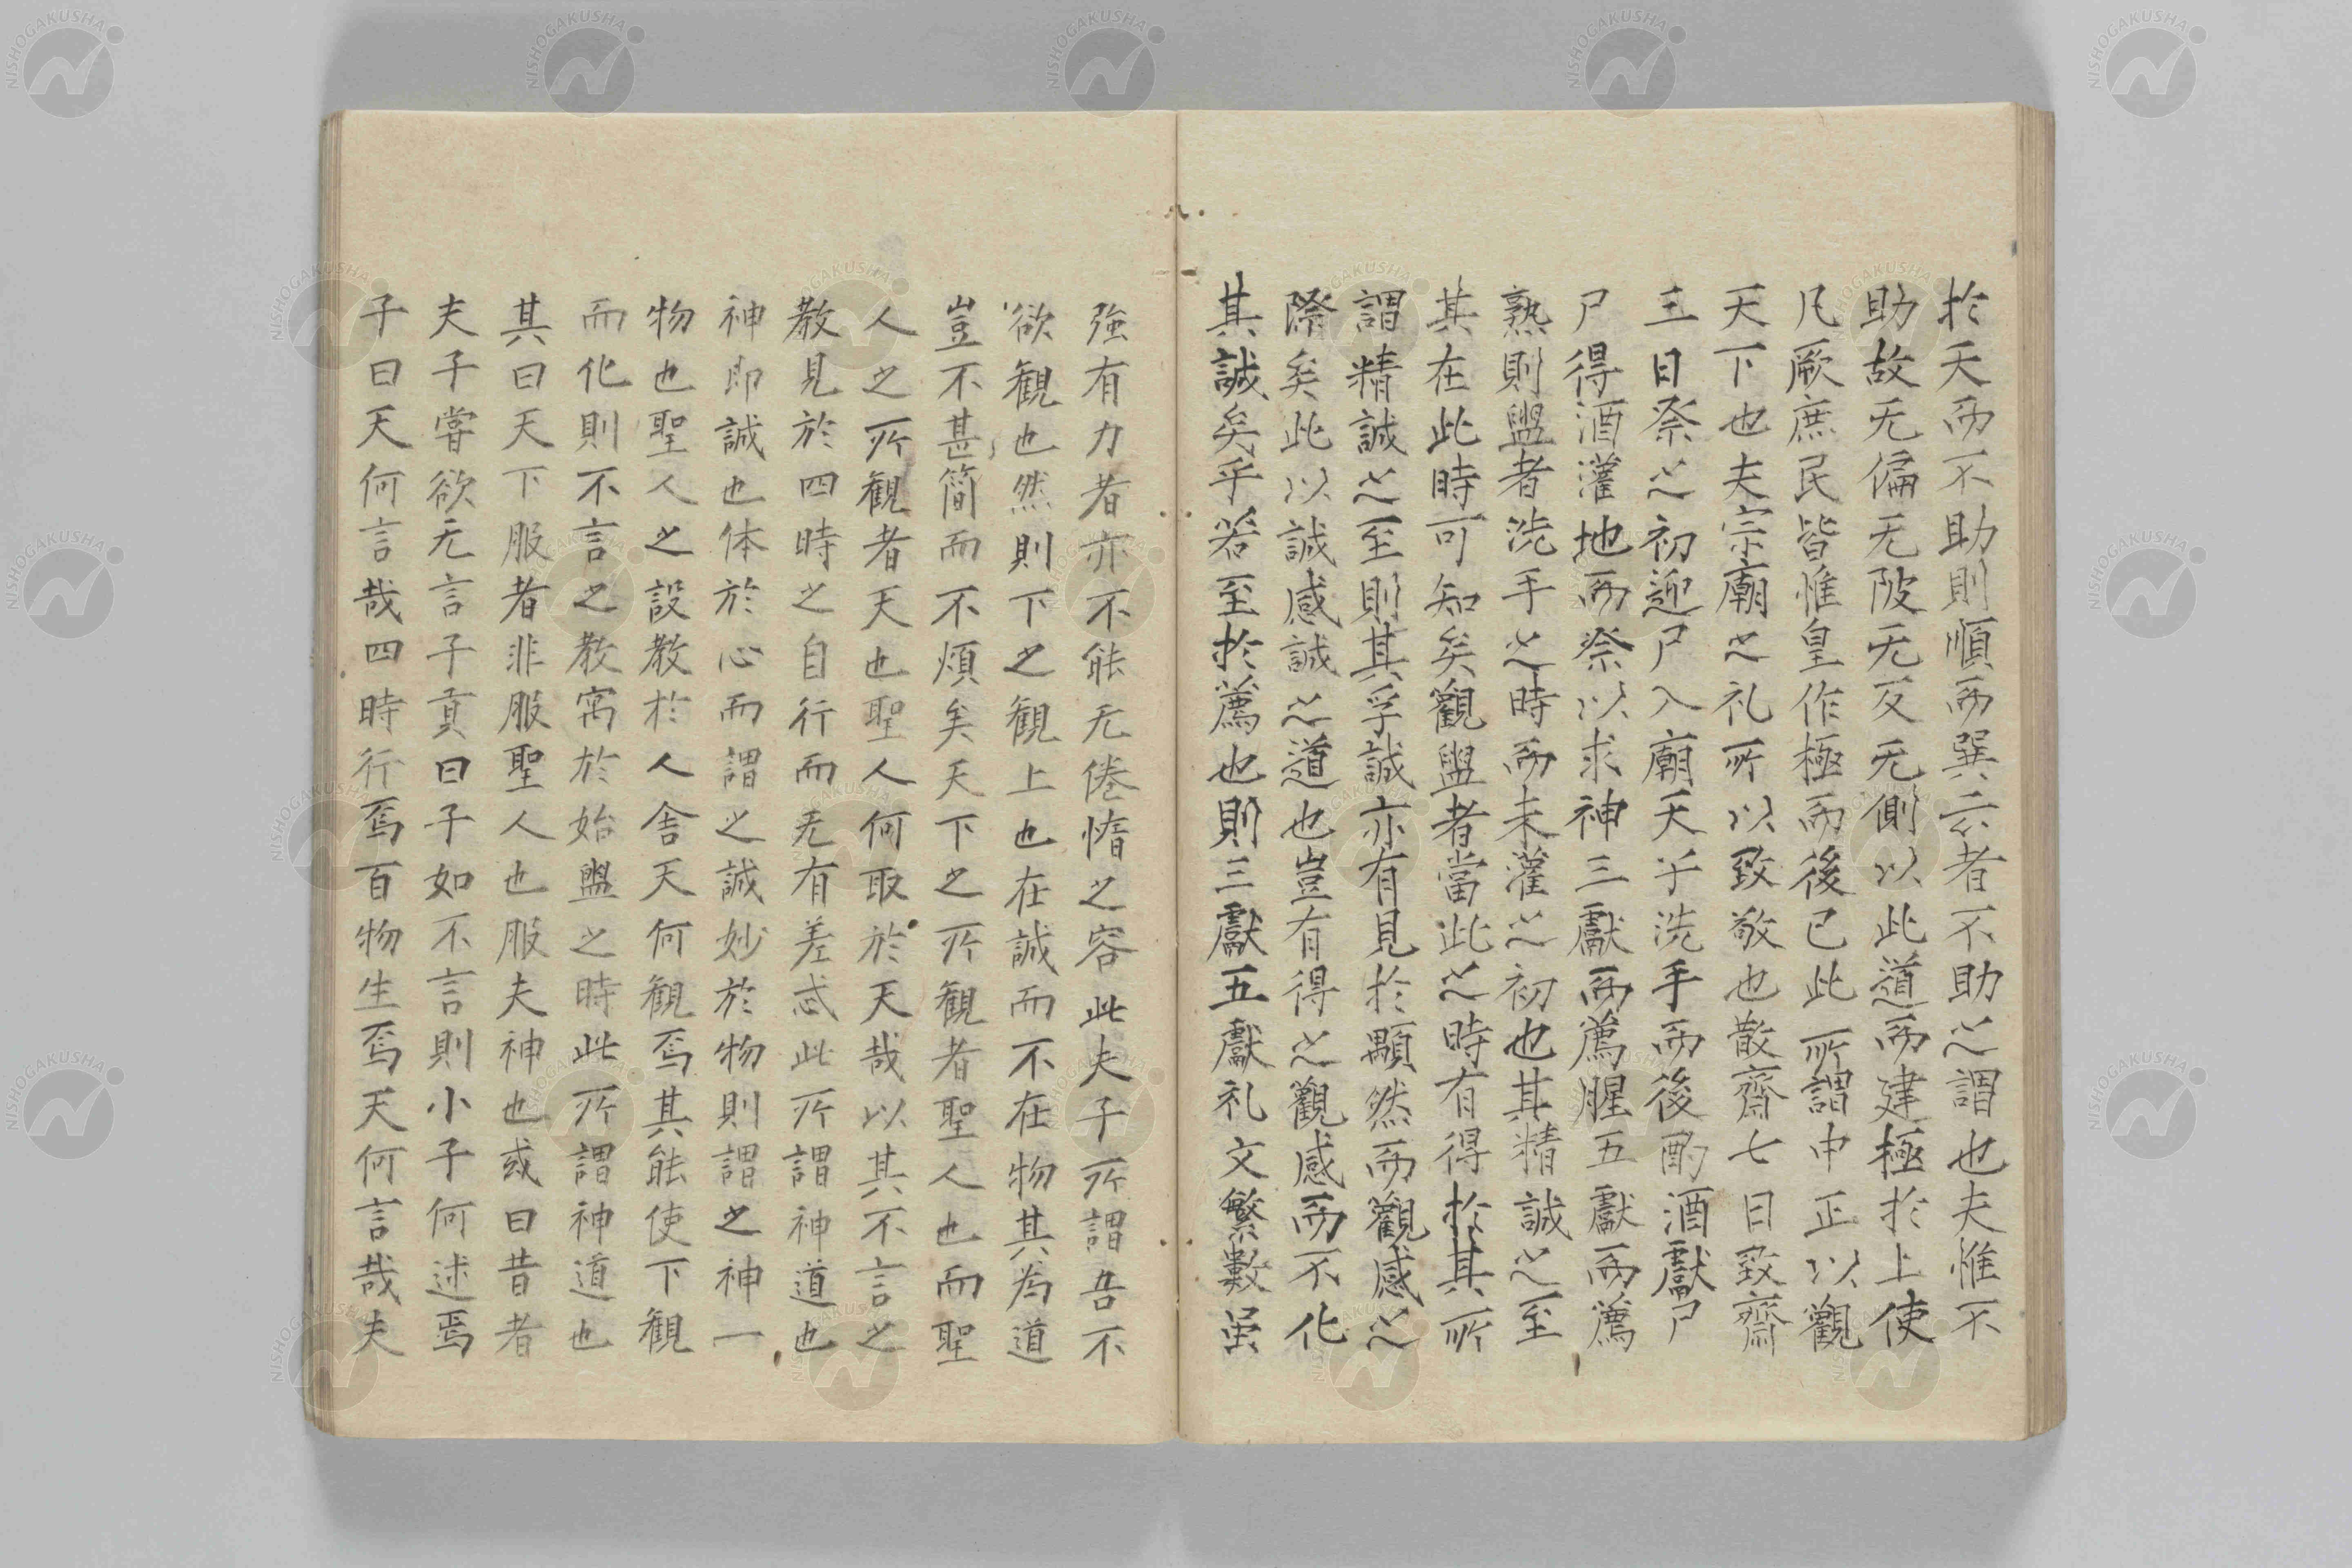 於天而不助則順而巽云者不助之謂也夫惟不
助故无偏无陂无反无側以此道而建極於上使
凡厥庶民皆惟皇作極而後已此所謂中正以觀
天下也夫宗廟之礼所以致敬也散齋七日致齋
三日祭之初迎尸入廟天子洗手而後酌酒獻尸
尸得酒灌地而祭以求神三獻而薦腥五獻而薦
熟則盥者洗手之時而未灌之初也其精誠之至
其在此時可知矣觀盥者當此之時有得於其所
謂精誠之至則其孚誠亦有見於顒然而觀感之
際矣此以誠感誠之道也豈有得之觀感而不化
其誠矣乎若至於薦也則三獻五獻礼文繁數虽
強有力者亦不能无倦惰之容此夫子所謂吾不
欲觀也然則下之觀上也在誠而不在物其為道
豈不甚簡而不煩矣天下之所觀者聖人也而聖
人之所觀者天也聖人何取於天哉以其不言之
教見於四時之自行而无有差忒此所謂神道也
神即誠也体於心而謂之誠妙於物則謂之神一
物也聖人之設教於人舍天何觀焉其能使下觀
而化則不言之教寓於始盥之時此所謂神道也
其曰天下服者非服聖人也服夫神也或曰昔者
夫子嘗欲无言子貢曰子如不言則小子何述焉
子曰天何言哉四時行焉百物生焉天何言哉夫
NISHOGAKUSHA